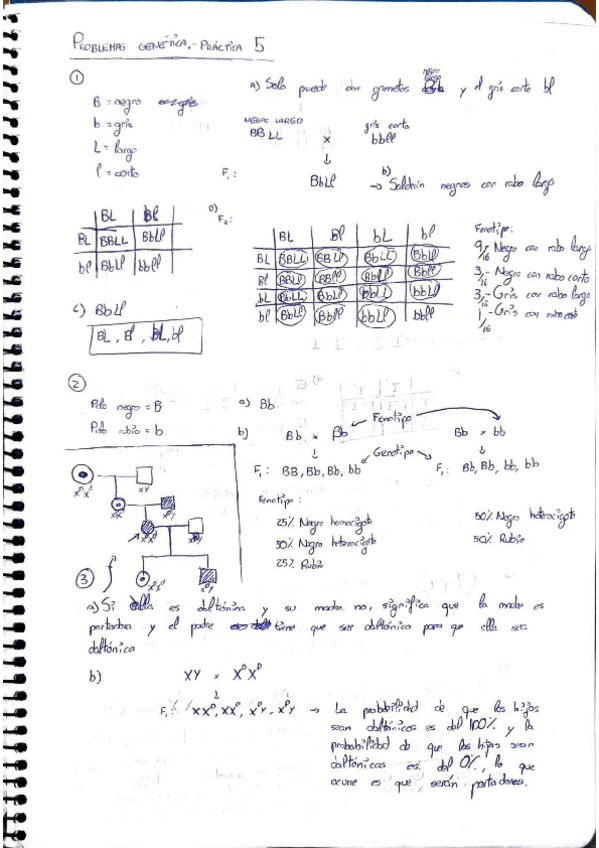 PROBLEMAS GENÉTICA.- PRÁCTICA 5
①
B = negro
b = gris
L = largo
l = corto
a) Solo puede dar gametos y el gris corto bl
NEGRO LARGO
BBLL × gris corto bbll
↓
F₁: BbLl
b) → Saldrán negros con rabo largo
BL Bl
BL BBLL BbLl
bl BbLl bbll
F₂:
BL Bl bL bl
BL BBLL BBLl BbLL BbLl
Bl BBLl BBll BbLl Bbll
bL BbLL BbLl bbLL bbLl
bl BbLl Bbll bbLl bbll
Fenotipo:
9/16 Negro con rabo largo
3/16 - Negro con rabo corto
3/16 - Gris con rabo largo
1/16 - Gris con rabo corto
c) BbLl
BL, Bl, bL, bl
②
Pelo negro = B
Pelo rubio = b
a) Bb
b) Bb × Bb ← Fenotipo → Bb × bb
↓ ← Genotipo → ↓
F₁: BB, Bb, Bb, bb
F₁: Bb, Bb, bb, bb
Fenotipo:
25% Negro homocigoto
50% Negro heterocigoto
25% Rubio
50% Negro heterocigoto
50% Rubio
XY
③
a) Si ella es daltónica y su madre no, significa que la madre es
portadora y el padre tiene que ser daltónico para que ella sea
daltónica
b) XY × XᴰXᴰ
↓
F₁ XXᴰ, XXᴰ, XᴰY, XᴰY → La probabilidad de que los hijos
sean daltónicos es del 100% y la
probabilidad de que las hijas sean
daltónicas es del 0%, lo que
ocurre es que serán portadores.